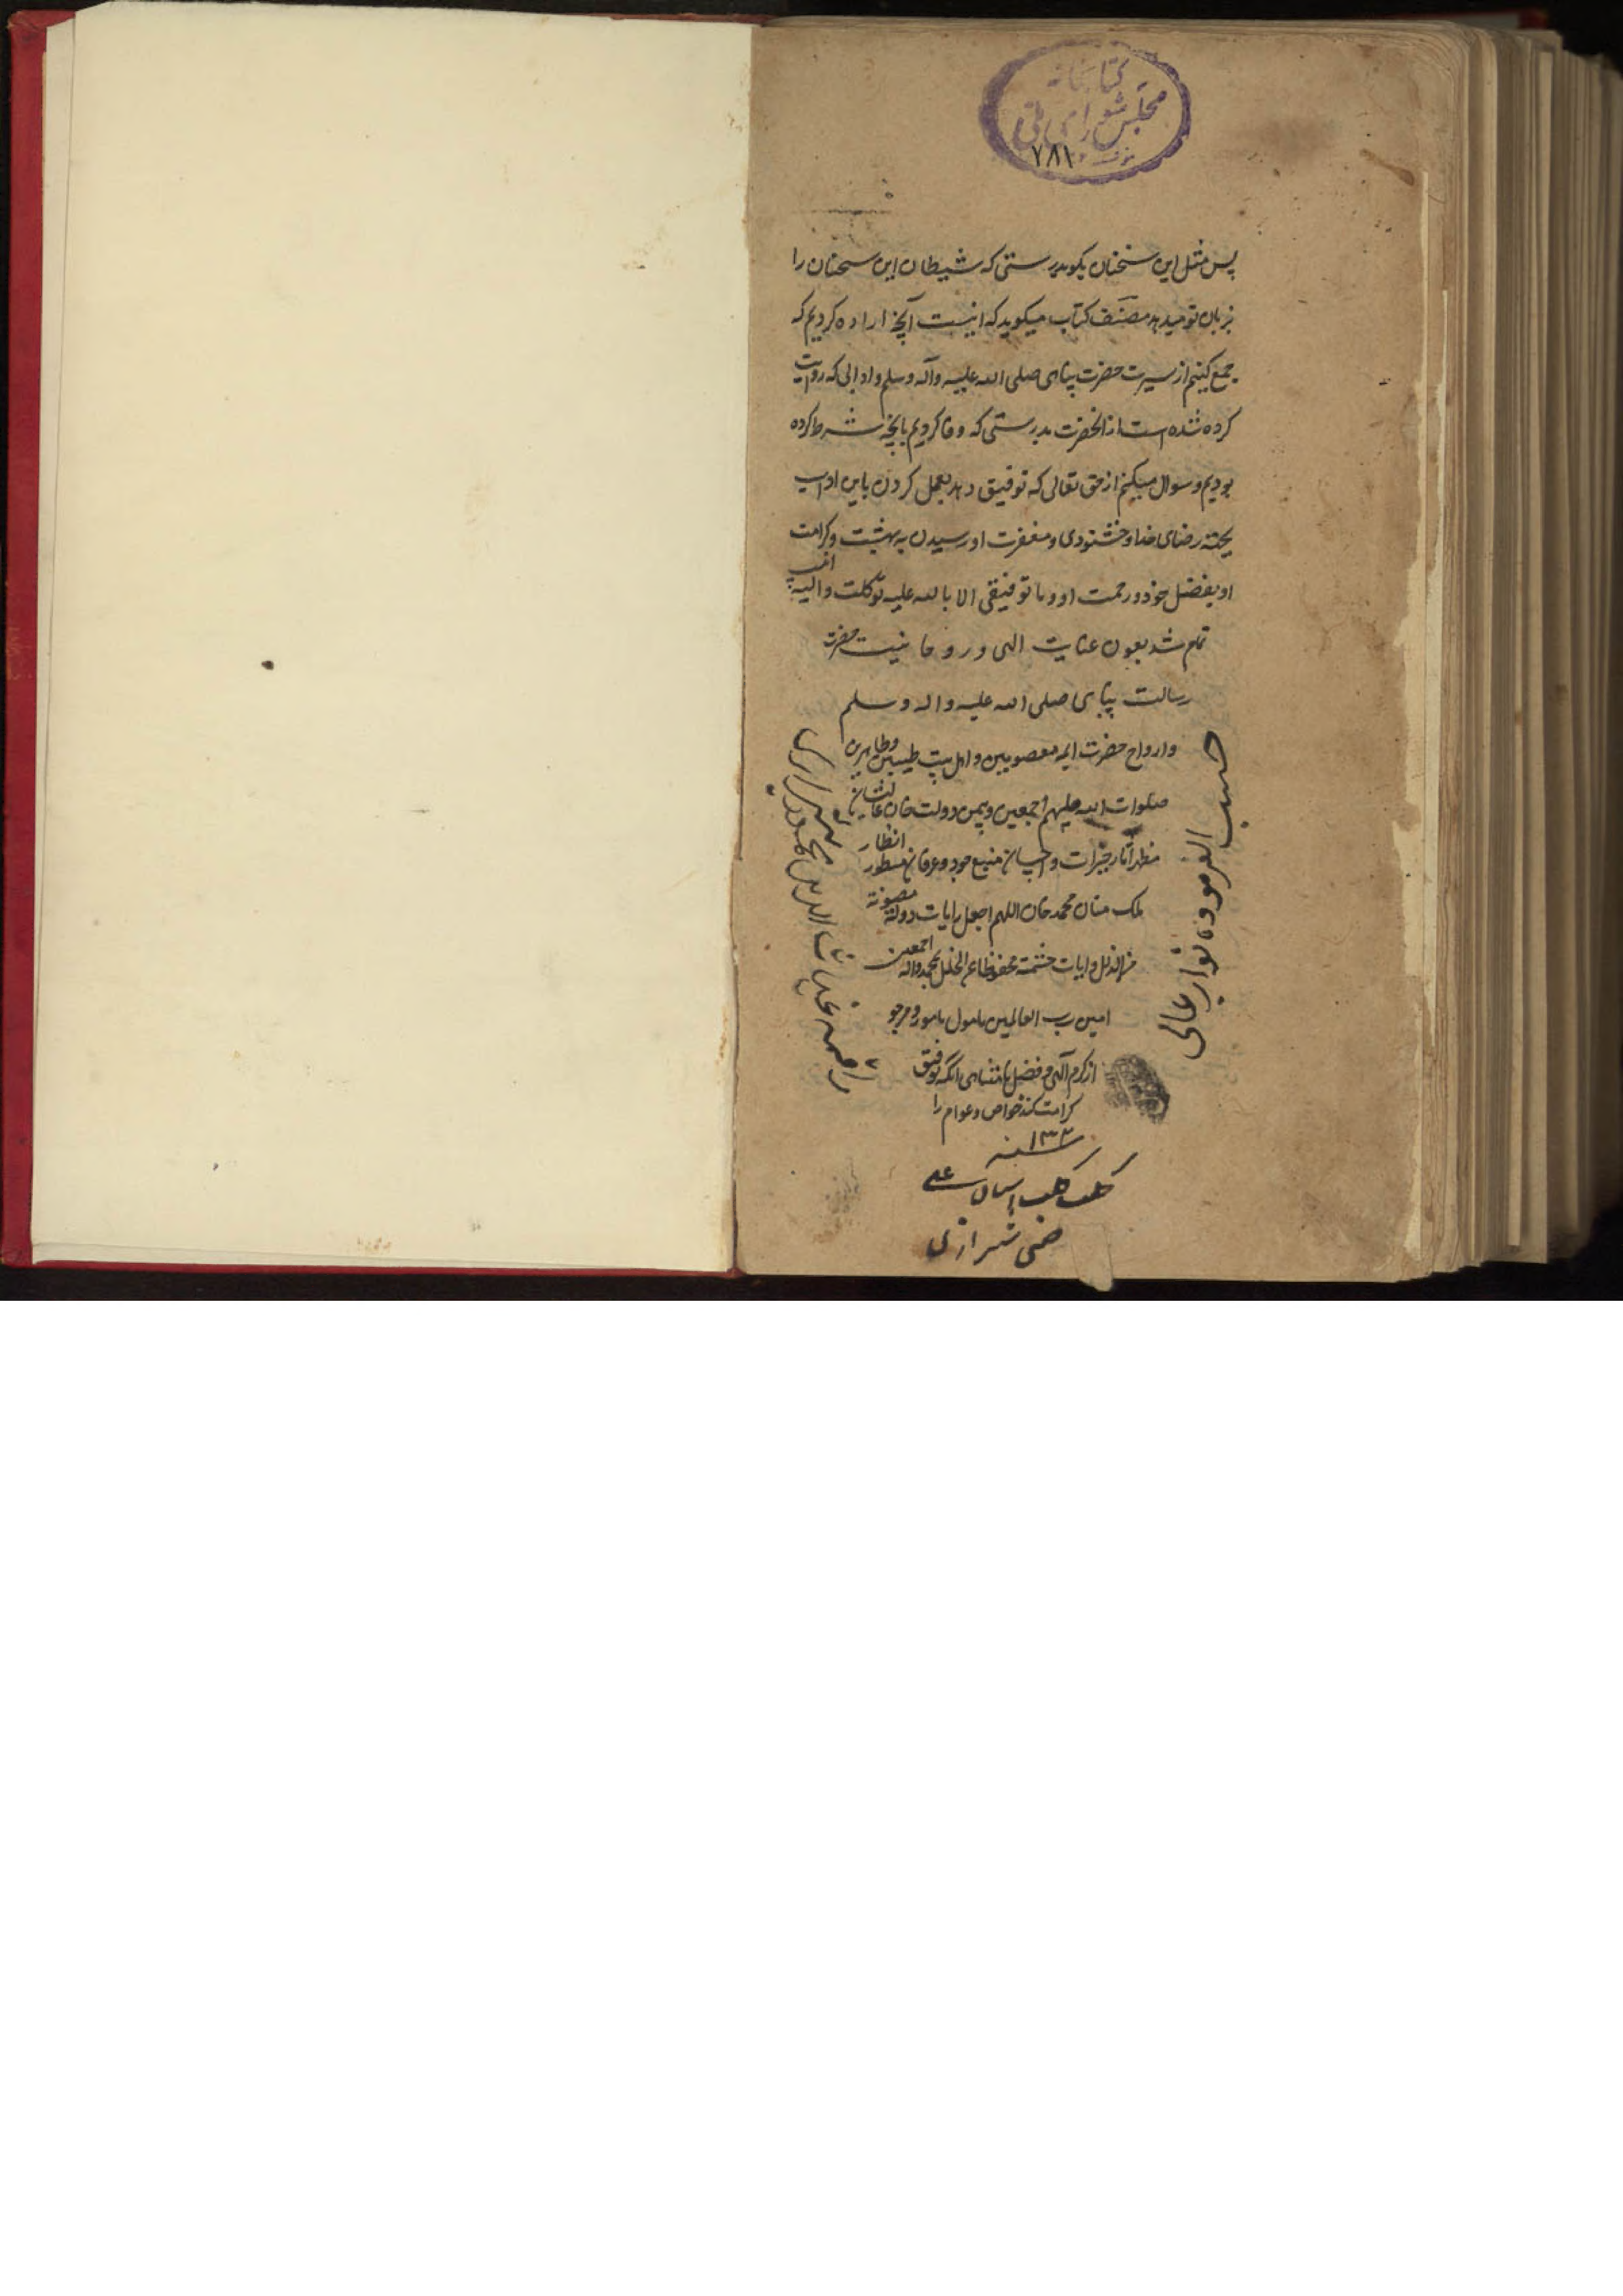 کتابخانه
مجلس شورای ملی
۷۸۱
پس مثل این سخنان بکو بدرستی که شیطان این سخنان را
بزبان تو میدهد مصنف کتاب میکوید که اینست آنچه اراده کردیم که
جمع کنیم از سیرت حضرت پناهی صلی الله علیه وآله وسلم وادابی که روایت
کرده شده است از انحضرت بدرستی که وفا کردیم بانچه شرط کرده
بودیم و سوال میکنم از حق تعالی که توفیق دهد بعمل کردن باین اداب
بجهته رضای خدا وخشنودی ومغفرت او ورسیدن به بهشت وکرامت
او بفضل خود ورحمت او وما توفیقی الا بالله علیه توکلت والیه انیب
تمام شد بعون عنایت الهی وروحانیت حضرت
رسالت پناهی صلی الله علیه واله وسلم
وارواح حضرت ایمه معصومین واهل بیت طیبین وطاهرین
صلوات الله علیهم اجمعین وبیمن دولت خان عالیشان
مظهر آثار خیرات واحسان منبع جود وعرفان منظور انظار
ملک منان محمد خان اللهم اجعل رایات دولته مصونة
من الزلل وایات حشمته محفوظا عن الخلل بمحمد واله اجمعین
امین رب العالمین مامول مامور ومرجو
از کرم الهی وفضل نامتناهی انکه توفیق
کرامت کند خواص وعوام را
سنه ۱۳۳
کلب
علی
شیرازی
حسب الفرموده نواب عالی
راقمه غیاث الدین محمود